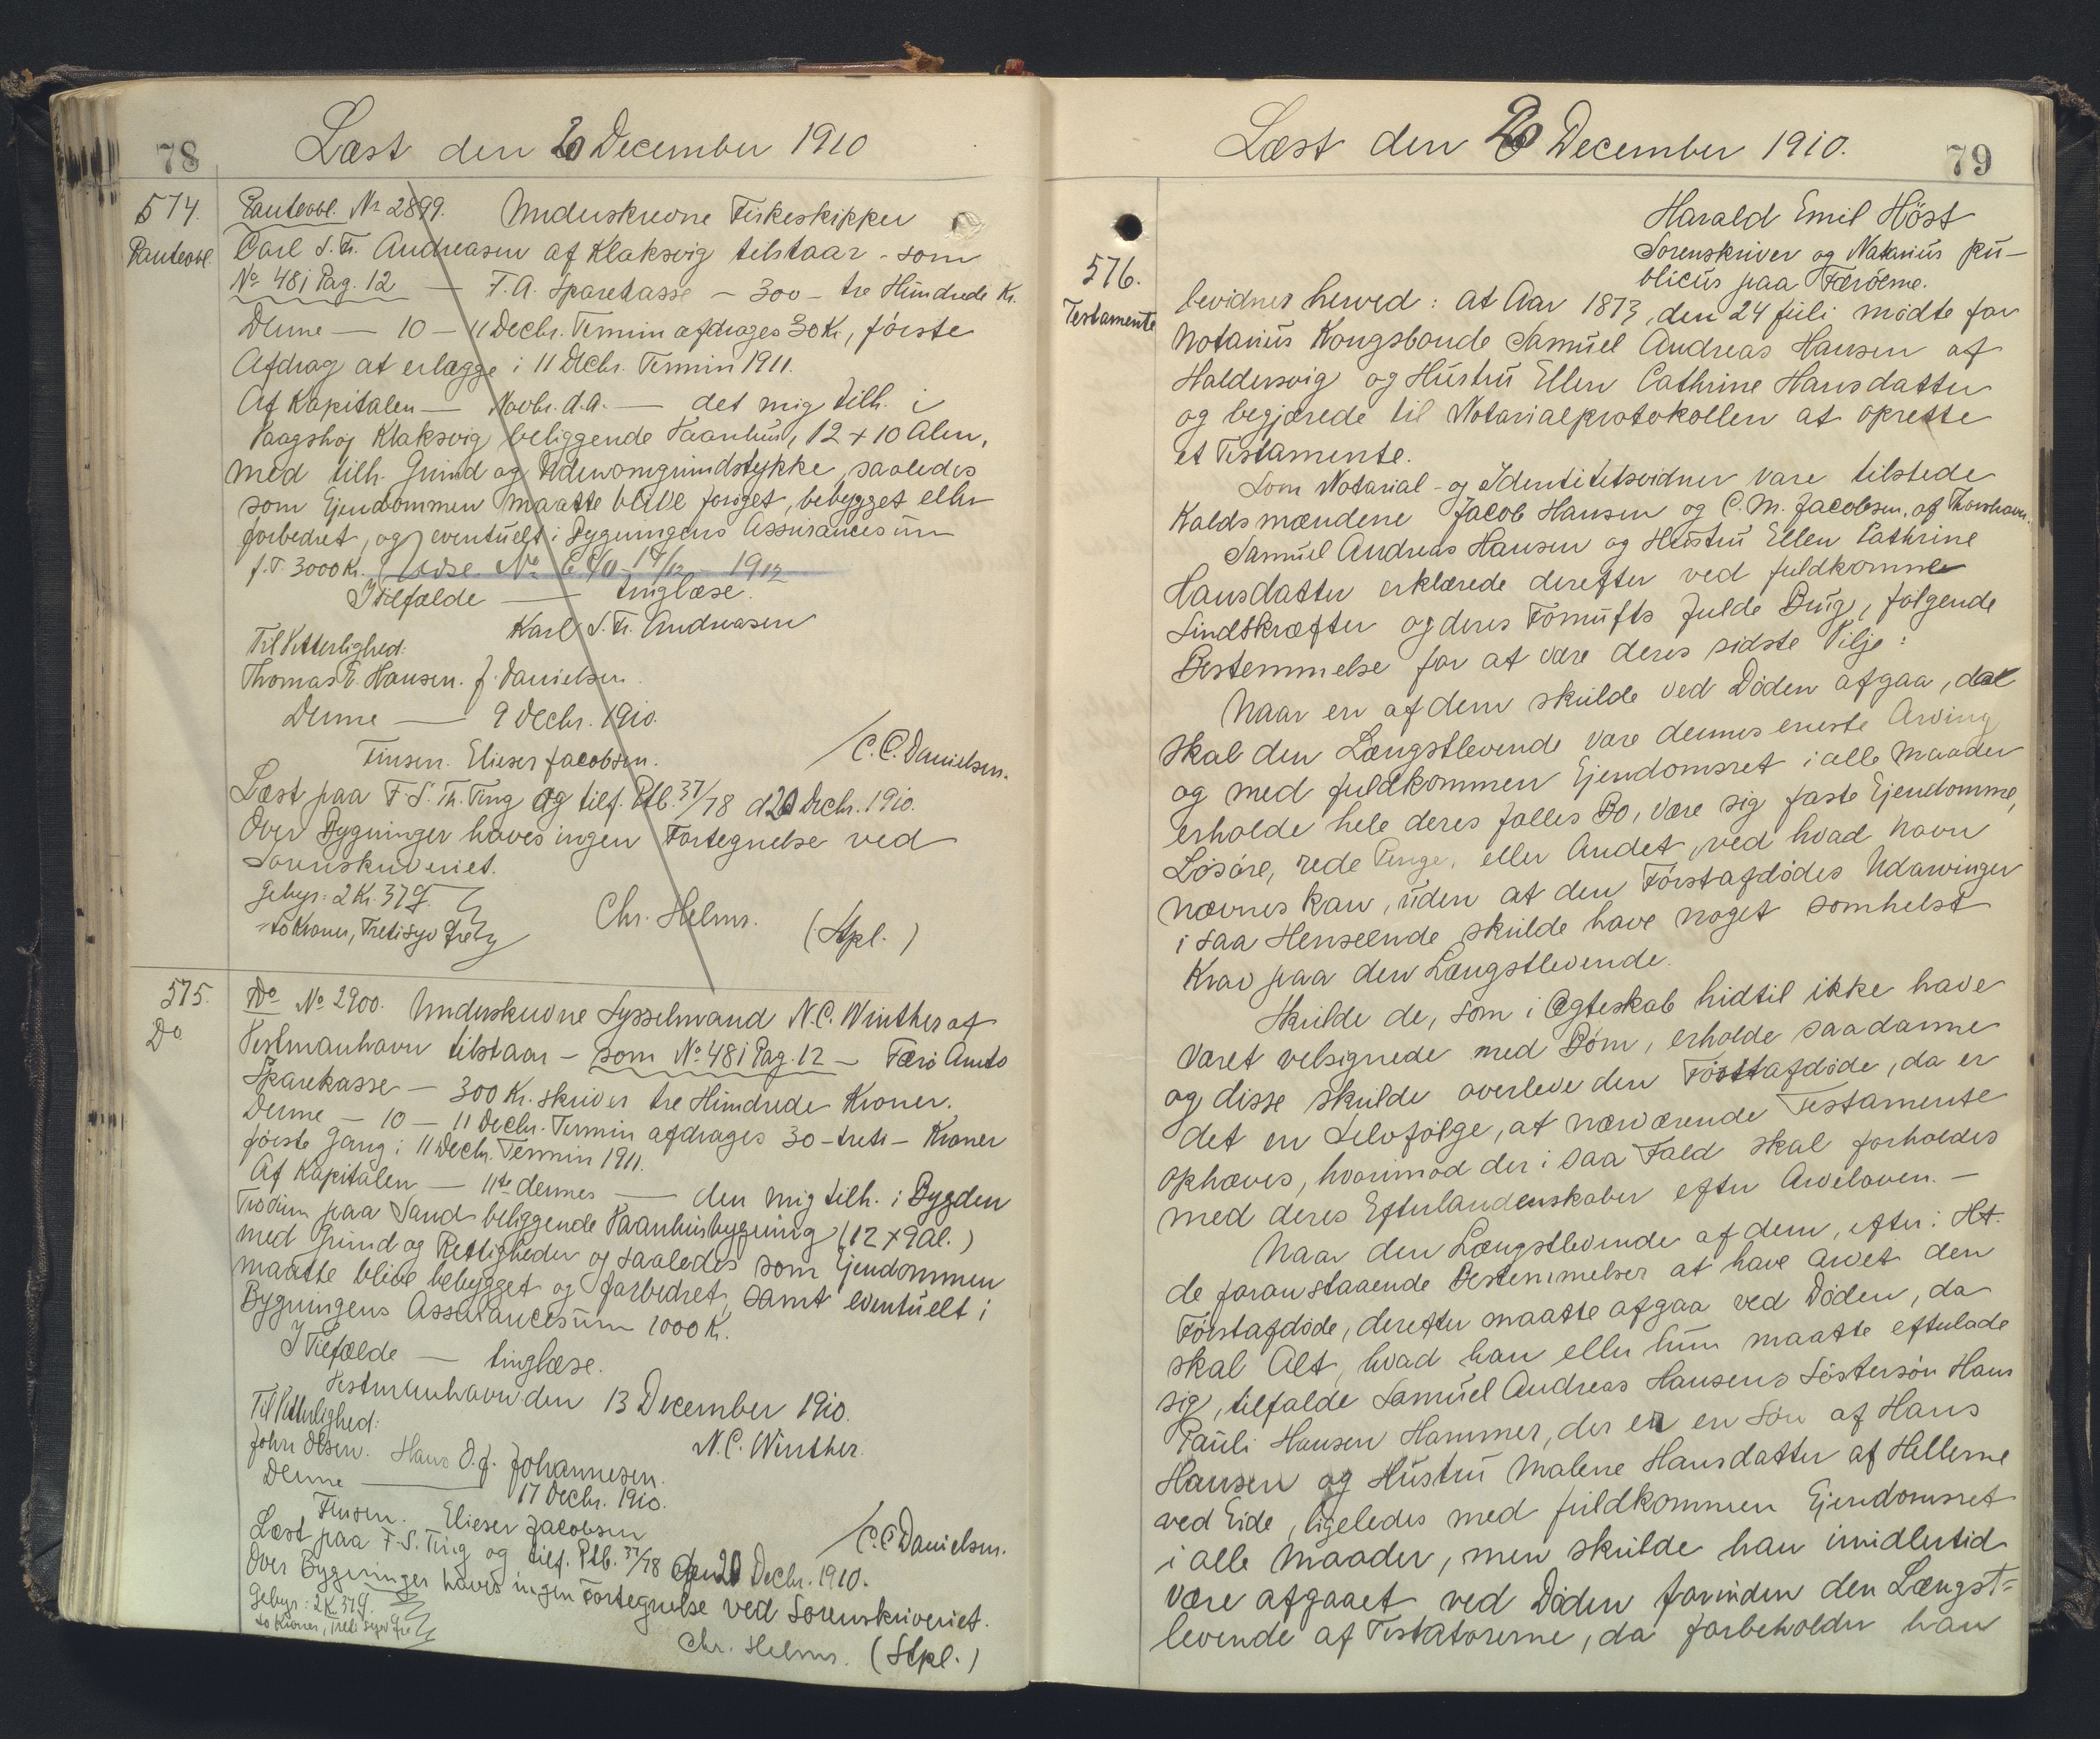 78
Læst den 20 December 1910
574.
Panteobl.
Panteobl. No 2899. Underskrevne Fiskeskipper
Carl S. Fr. Andreasen af Klaksvig tilstaar - som
No 48 i Pag. 12 — F. A. Sparekasse — 300 — tre Hundrede Kr.
Denne — 10 — 11 Decbr. Termin afdrages 30 Kr, første
Afdrag at erlægge i 11 Decbr. Termin 1911.
Af Kapitalen — Novbr. d.A. — det mig tilh. i
Vaagshøj Klaksvig beliggende Vaanhus, 12 x 10 Alen,
med tilh. Grund og Udenomgrundstykke, saaledes
som Ejendommen maatte blive forøget, bebygget eller
forbedret, og eventuelt i Bygningens Assurancesum
f.T. 3000 Kr. Udse. No 640 - 17/12 - 1912
I Tilfælde — tinglæse.
Karl S. Fr. Andreasen
Til Vitterlighed:
Thomas E. Hansen. J. Danielsen.
Denne — 9 Decbr. 1910.
Finsen. Elieser Jacobsen.
/C. C. Danielsen.
Læst paa F. S. Th. Ting og tilf. Ptb. 37/78 d 20 Decbr. 1910.
Over Bygninger haves ingen Fortegnelse ved
Sorenskriveriet.
Gebyr: 2 Kr. 37 Ø.
to Kroner, Tretisyv Øre
Chr. Helms. (Stpl.)
575.
Do
Do No 2900. Underskrevne Sysselmand N. C. Winther af
Vestmanhavn tilstaar — som No 48 i Pag. 12 — Færø Amts
Sparekasse — 300 Kr. skriver tre Hundrede Kroner.
Denne — 10 — 11 Decbr. Termin afdrages 30 - treti - Kroner
første Gang i 11 Decbr. Termin 1911.
Af Kapitalen — 11te dennes — den mig tilh. i Bygden
Trødum paa Sand beliggende Vaanhusbygning (12 x 9 Al.)
med Grund og Rettigheder og saaledes som Ejendommen
maatte blive bebygget og forbedret, samt eventuelt i
Bygningens Assurancesum 1000 K.
I Tilfælde — tinglæse.
Vestmanhavn den 13 December 1910.
Til Vitterlighed:
N. C. Winther.
John Olsen. Hans D. J. Johannesen.
Denne — 17 Decbr. 1910.
Finsen. Elieser Jacobsen
/C. C. Danielsen.
Læst paa F. S. Ting og tilf. Ptb. 37/78 den 20 Decbr. 1910.
Over Bygninger haves ingen Fortegnelse ved Sorenskriveriet.
Gebyr: 2 K. 37 Ø.
to Kroner, Treti syv Øre
Chr. Helms. (Stpl.)
Læst den 20 December 1910.
79
Harald Emil Höst
Sorenskriver og Notarius Pu-
blicus paa Færöerne.
576.
Testamente
bevidner herved: at Aar 1873, den 24 Juli mödte for
Notarius Kongsbonde Samuel Andreas Hansen af
Haldersvig og Hustru Ellen Cathrine Hansdatter
og begjærede til Notarialprotokollen at oprette
et Testamente.
Som Notarial- og Identitetsvidner vare tilstede
Kaldsmændene Jacob Hansen og C. M. Jacobsen, af Thorshavn.
Samuel Andreas Hansen og Hustru Ellen Cathrine
Hansdatter erklærede derefter ved fuldkomne
Sindskræfter og deres Fornufts fulde Brug, følgende
Bestemmelse for at være deres sidste Vilje:
Naar en af dem skulde ved Döden afgaa, da
skal den Længstlevende være dennes eneste Arving
og med fuldkommen Ejendomsret i alle Maader
erholde hele deres fælles Bo, være sig faste Ejendomme,
Lösöre, rede Penge, eller Andet, ved hvad Navn
nævnes kan, uden at den Förstafdödes Udarvinger
i saa Henseende skulde have noget somhelst
Krav paa den Længstlevende.
Skulde de, som i Ægteskab hidtil ikke have
været velsignede med Börn, erholde saadanne
og disse skulde overleve den Förstafdöde, da er
det en Selvfölge, at nærværende Testamente
ophæves, hvorimod der i saa Fald skal forholdes
med deres Efterladenskaber efter Arveloven. —
Naar den Længstlevende af dem, efter i Ht.
de foranstaaende Bestemmelser at have arvet den
Förstafdöde, derefter maatte afgaa ved Döden, da
skal Alt, hvad han eller hun maatte efterlade
sig, tilfalde Samuel Andreas Hansens Söstersön Hans
Pauli Hansen Hammer, der er en Sön af Hans
Hansen og Hustru Malene Hansdatter af Hellerne
ved Eide, ligeledes med fuldkommen Ejendomsret
i alle Maader, men skulde han imidlertid
være afgaaet ved Döden forinden den Længst=
levende af Testatorerne, da forbeholder han